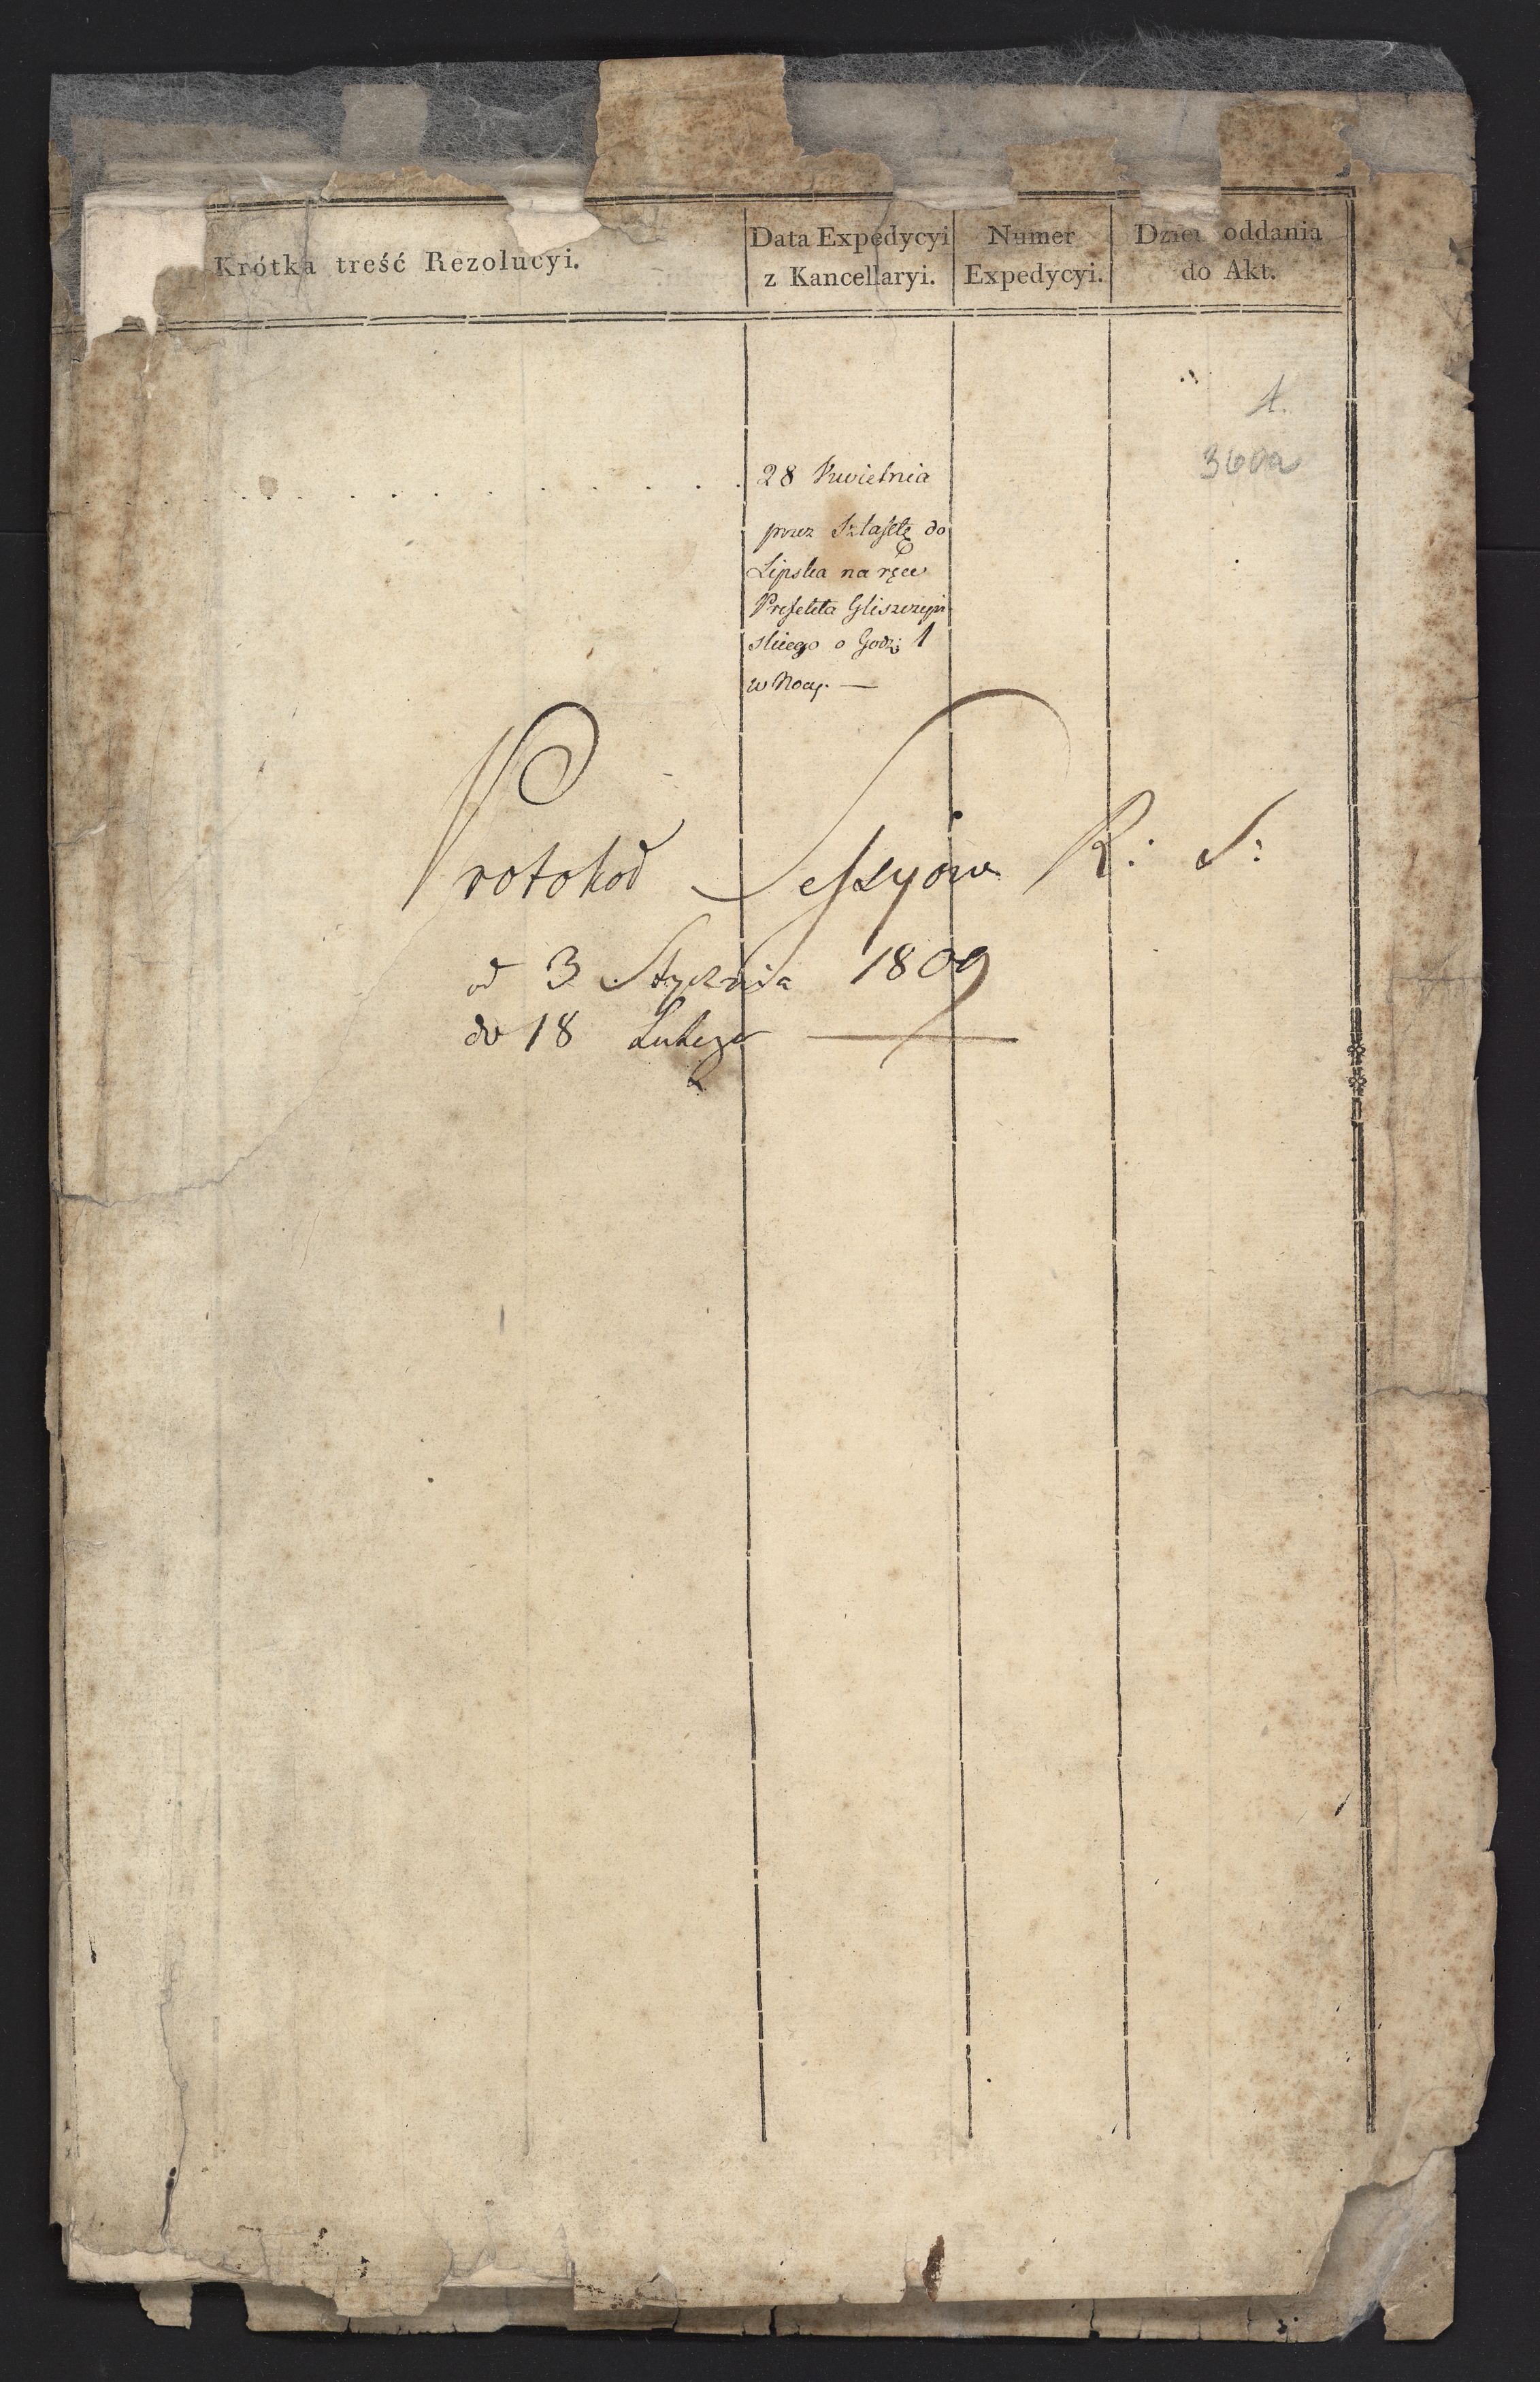 Krótka treść Rezolucyi.
Data Expedycyi
z Kancellaryi.
Numer
Expedycyi.
Dzień oddania
do Akt.
1.
360a
28 Kwietnia
przez Sztafetę do
Lipska na ręce
Prefekta Gliszczyń
skiego o Godz: 1
w Nocy. —
Protokoł Sessyów R: S:
od 3 Stycznia 1809
do 18 Lutego —